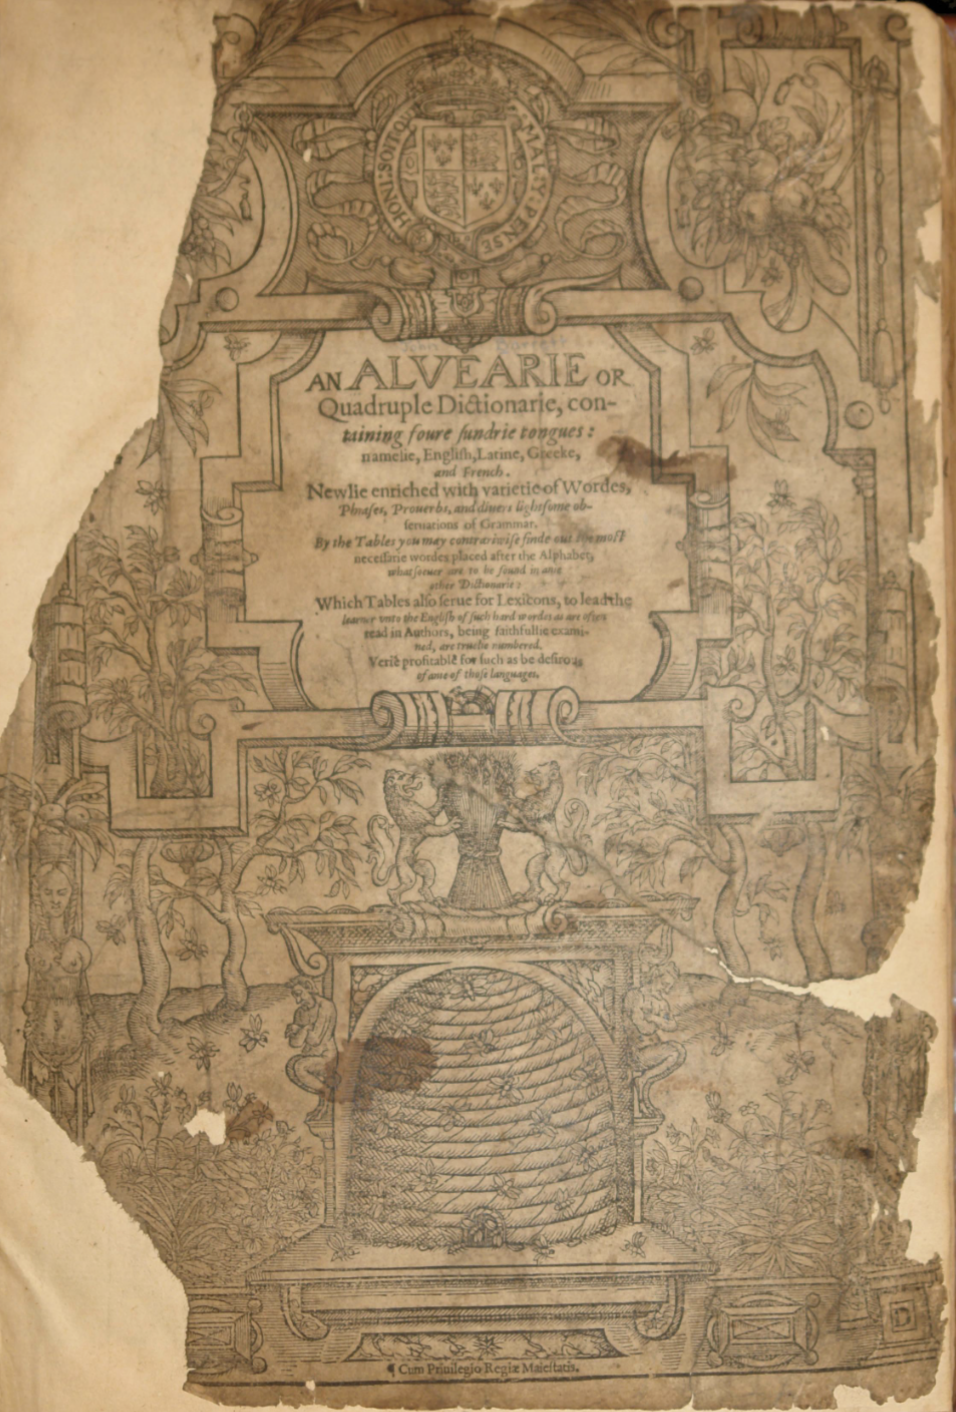 HONI·SOIT·QUI
MAL·Y·PENSE
AN ALVEARIE OR
Quadruple Dictionarie, con-
taining foure sundrie tongues:
namelie, English, Latine, Greeke,
and French.
Newlie enriched with varietie of Wordes,
Phrases, Prouerbs, and diuers lightsome ob-
seruations of Grammar.
By the Tables you may contrariwise finde out the most
necessarie wordes placed after the Alphabet,
whatsoeuer are to be found in anie
other Dictionarie:
Which Tables also serue for Lexicons, to lead the
learner vnto the English of such hard wordes as are often
read in Authors, being faithfullie exami-
ned, are truelie numbered.
Verie profitable for such as be desirous
of anie of those languages.
D
¶ Cum Priuilegio Regiæ Maiestatis.